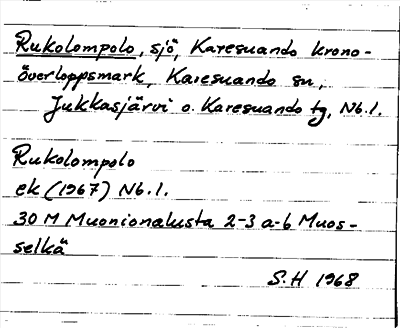 Rukolompolo, sjö, Karesuando krono-
överloppsmark, Karesuando sn,
Jukkasjärvi o. Karesuando tg, Nb. l.
Rukolompolo
ek (1967) Nb. l.
30 M Muonionalusta 2-3 a-b Muos-
selkä
S.H 1968